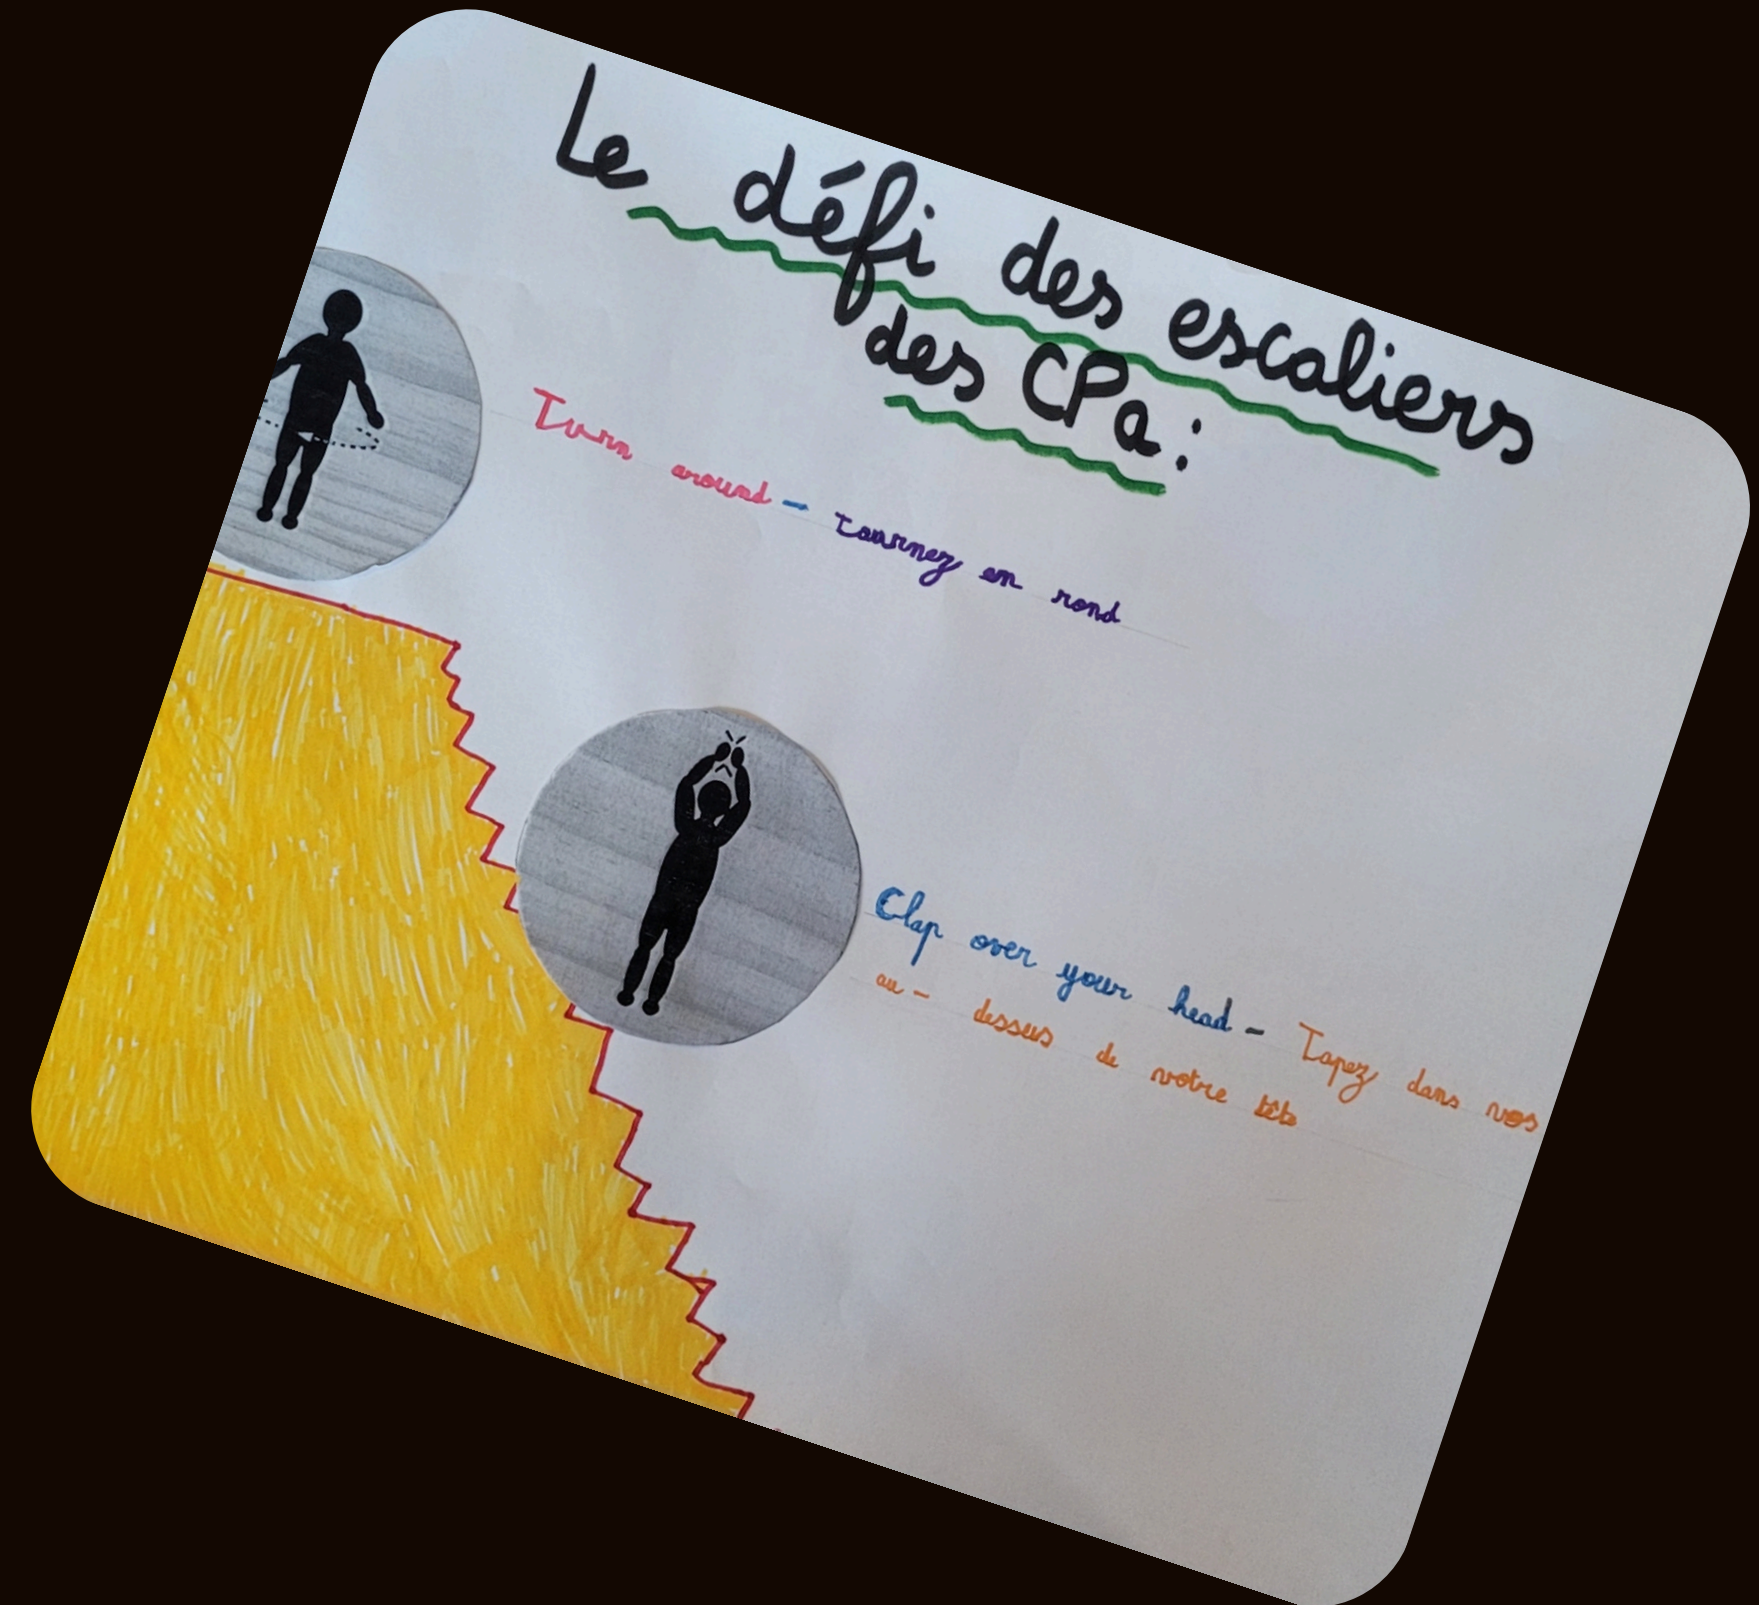 Le défi des escaliers
des CPa :
Turn around - tournez en rond
Clap over your head - Tapez dans vos
au - dessus de votre tête